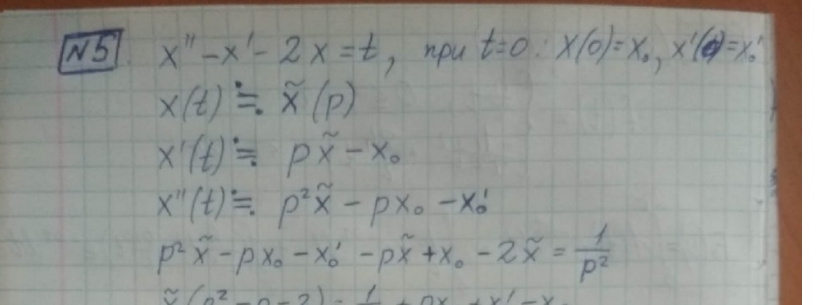 №5 x'' - x' - 2x = t, при t=0: x(0)=x₀, x'(0)=x₀'
x(t) ≒ x̃(p)
x'(t) ≒ px̃ - x₀
x''(t) ≒ p²x̃ - px₀ - x₀'
p²x̃ - px₀ - x₀' - px̃ + x₀ - 2x̃ = 1/p²
x̃(p² - p - 2) = 1/ + px₀ + x₀' - x₀